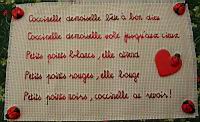 Coccinelle demoiselle bête à bon dieu
Coccinelle demoiselle vole jusqu'aux cieux
Petits points blancs, elle attend
Petits points rouges, elle bouge
Petits points noirs, coccinelle au revoir!